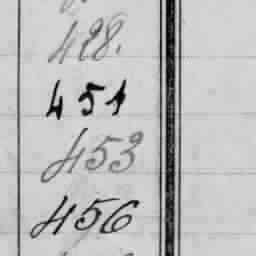 428.
451
453
456